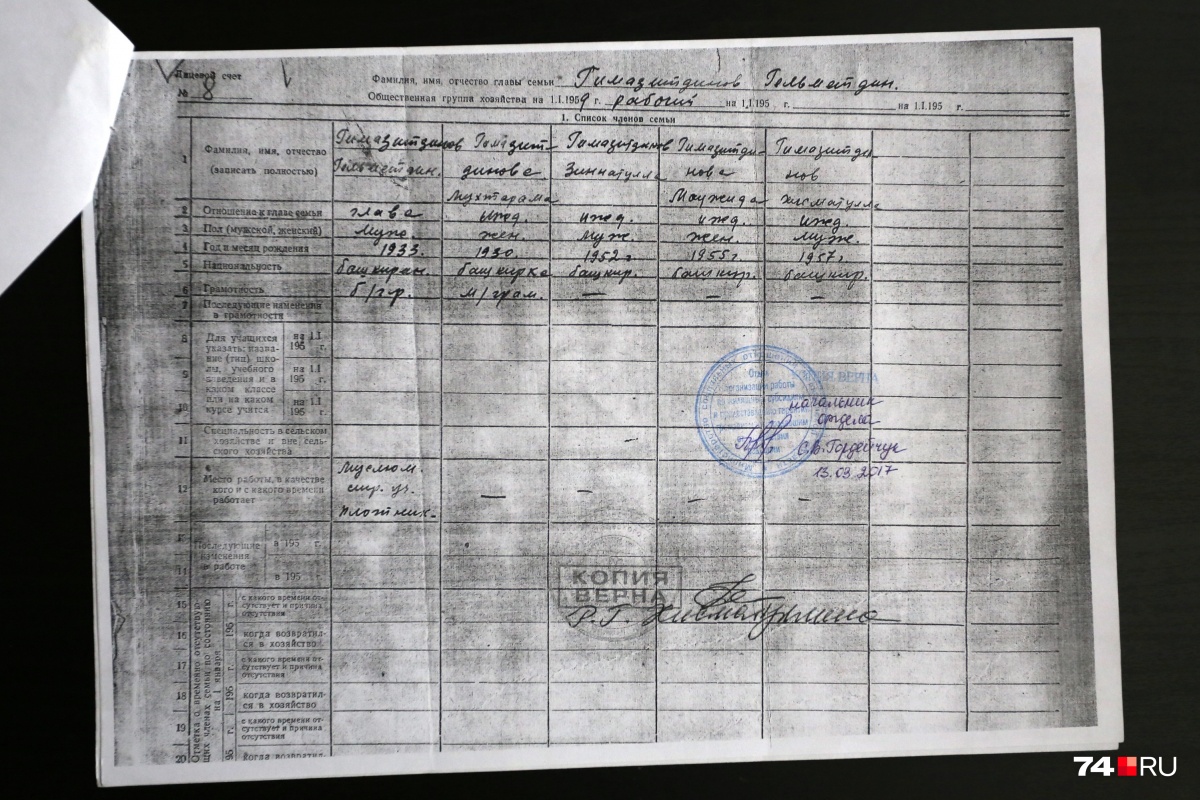 Лицевой счет
№ 8
Фамилия, имя, отчество главы семьи Гимазитдинов Гельметдин.
Общественная группа хозяйства на 1.I.1959 г. рабочий на 1.I.195 г. на 1.I.195 г.
1. Список членов семьи
1 Фамилия, имя, отчество (записать полностью)
Гимазитдинов
Гимазит-
динова
Мухтарама
Гимазитдинов
Зиннатулла
Гимазитди-
нова
Маужида
Гимазитди
нов
Хикматулла
2 Отношение к главе семьи глава ижд. ижд. ижд. ижд
3 Пол (мужской, женский) муж. жен. муж. жен. муж.
4 Год и месяц рождения 1933. 1930. 1952 г 1955 г. 1957 г
5 Национальность башкирин. башкирка башкир. башкир. башкир.
6 Грамотность б/гр. м/грам. — — —
7 Последующие изменения
в грамотности
Для учащихся
указать: назва-
ние (тип) шко-
лы, учебного
заведения и в
каком классе
или на каком
курсе учится
8 на 1.I
195 г.
9 на 1.I
195 г.
10 на 1.I
195 г.
11 Специальность в сельском
хозяйстве и вне сель-
ского хозяйства
12 Место работы, в качестве
кого и с какого времени
работает
Муслюм.
плотник.
— — — —
Последующие
изменения
в работе
в 195 г.
14 в 195 г.
Отметка о временно отсутствую-
щих членах семьи по состоянию
на 1 января
15 с какого времени от-
сутствует и причина
отсутствия
195 г.
16 когда возвратил-
ся в хозяйство
17 с какого времени от-
сутствует и причина
отсутствия
195 г.
18 когда возвратил-
ся в хозяйство
19 с какого времени от-
сутствует и причина
отсутствия
95 г.
20 когда возвратил-
Отдел
организации работы
КОПИЯ ВЕРНА
начальник
отдела
С.В. Гордейчук
13.03.2017
КОПИЯ
ВЕРНА
Р.Г. Хикматуллина
74.RU